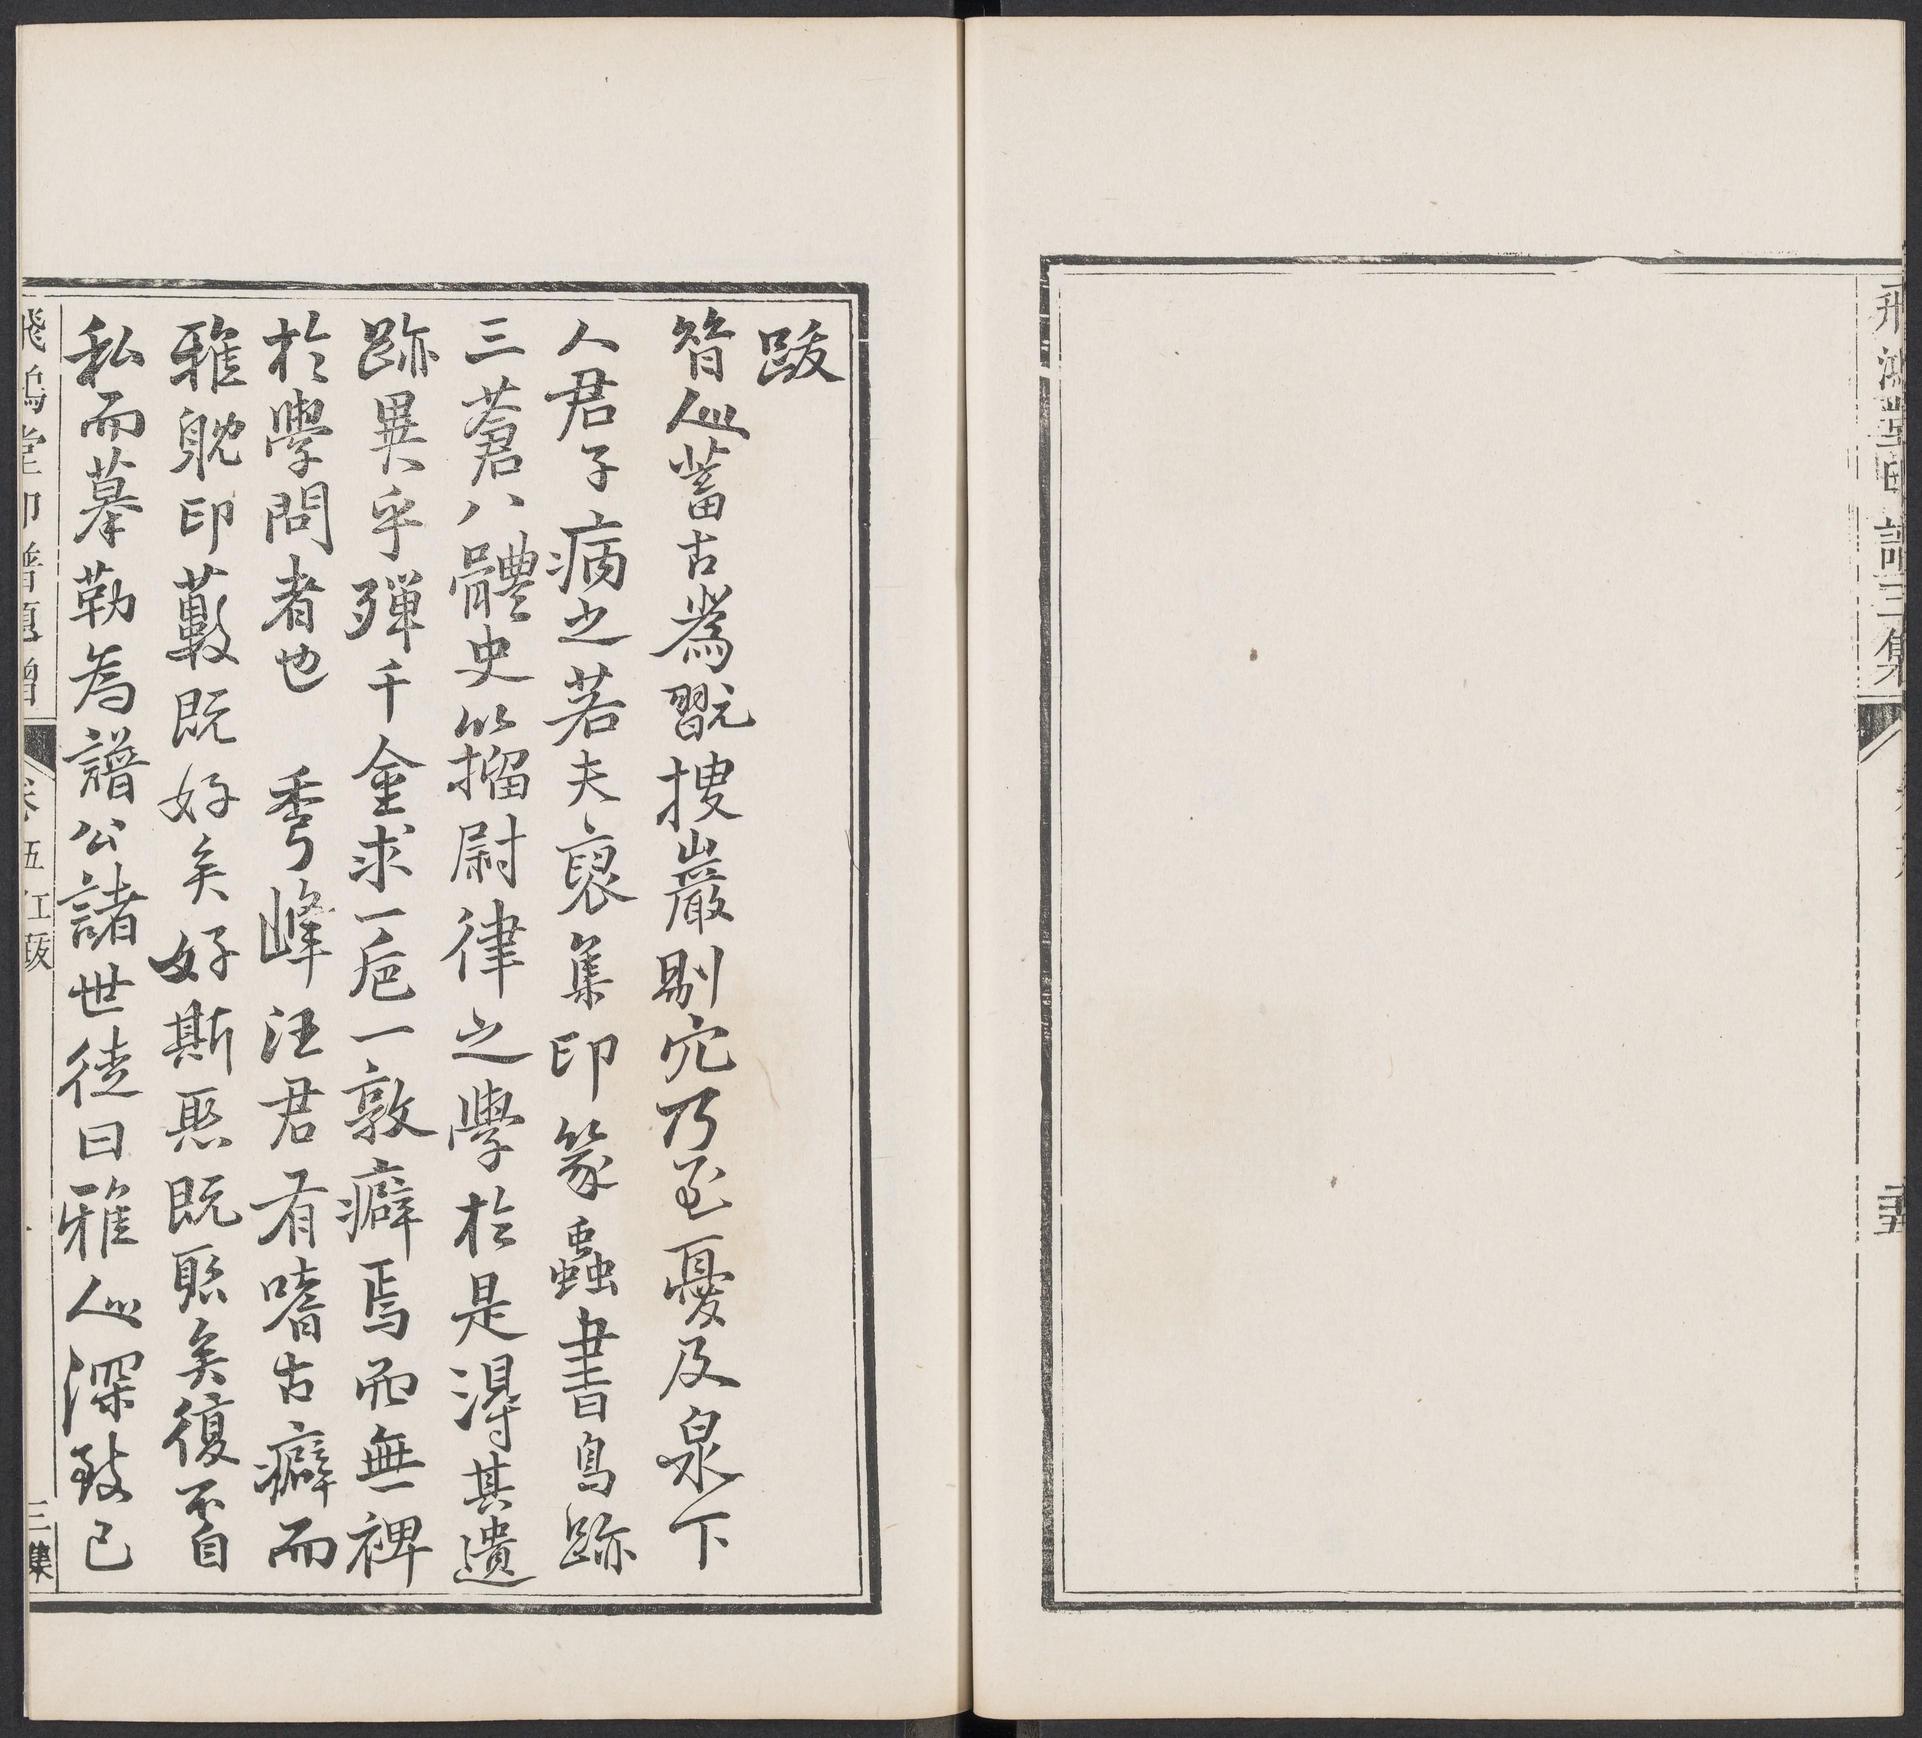 飛鴻堂印譜三集
跋
昔人蓄古為翫搜巖剔穴乃至憂及泉下
人君子病之若夫裒集印篆蟲書鳥跡
三蒼八體史籀尉律之學於是得其遺
跡異乎殫千金求一卮一敦癖焉而無裨
於學問者也 秀峰汪君有嗜古癖而
雅躭印藪既好矣好斯聚既聚矣復不自
私而摹勒為譜公諸世徒曰雅人深致已
飛鴻堂印譜題贈 卷伍 江跋 三集